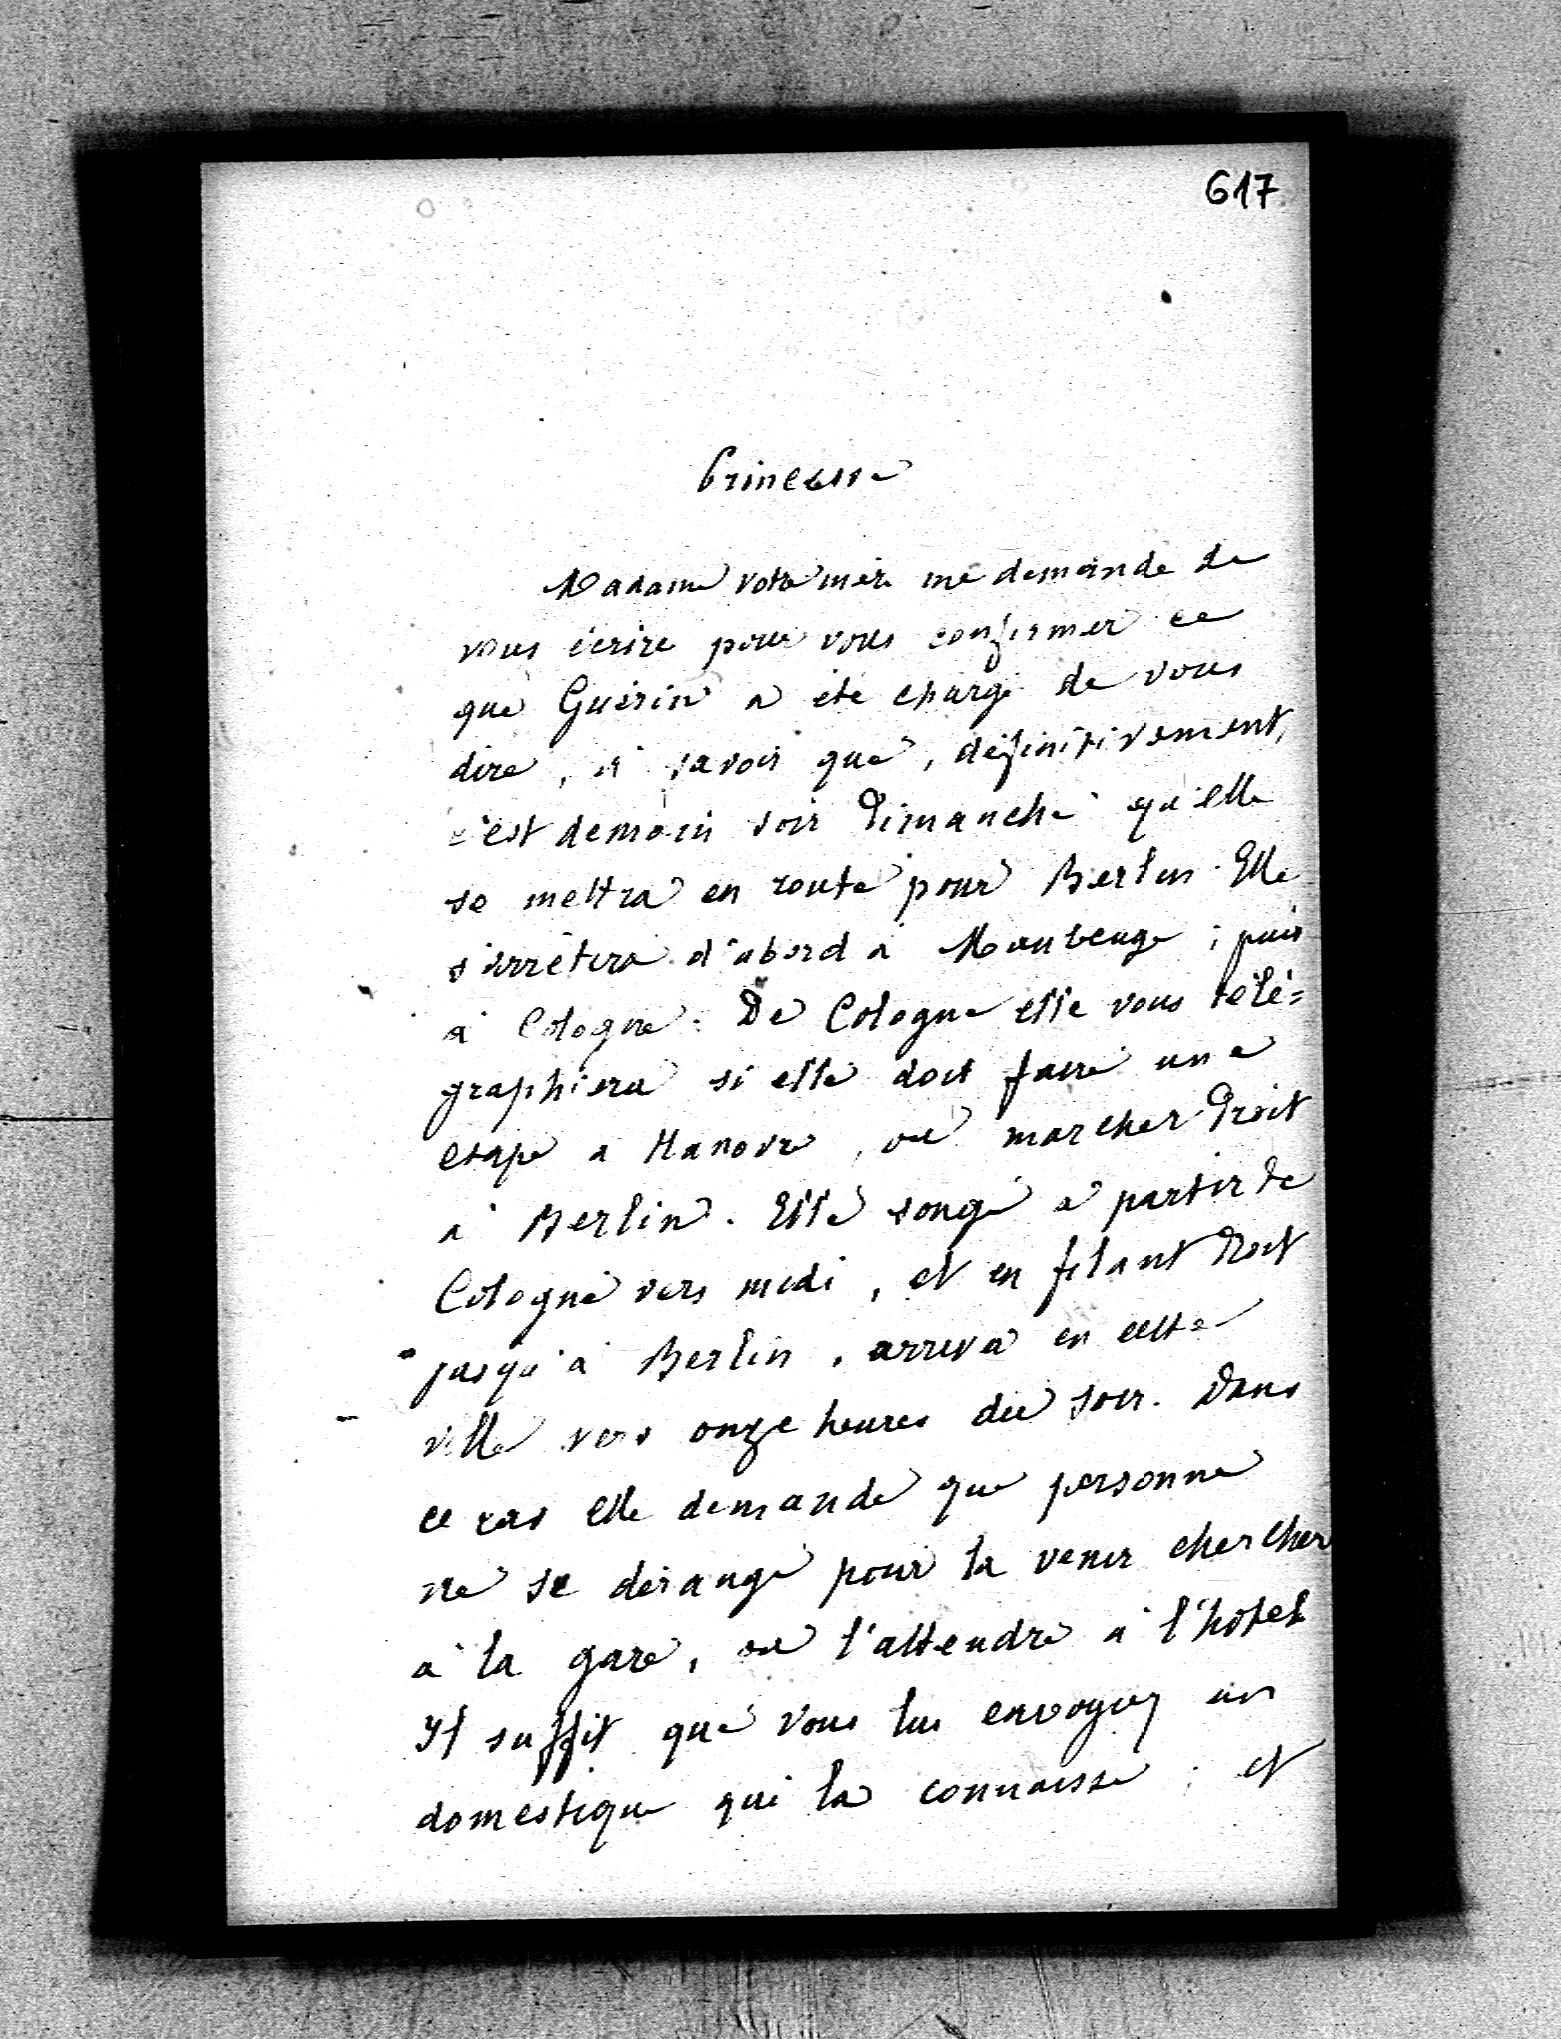 617
Princesse
Madame votre mère me demande de
vous écrire pour vous confirmer ce
que Guérin a été chargé de vous
dire, à savoir que, définitivement,
c'est demain soir Dimanche qu'elle
se mettra en route pour Berlin. Elle
s'arrêtera d'abord à Maubeuge ; puis
à Cologne. De Cologne elle vous télé=
graphiera si elle doit faire une
etape a Hanovre, ou marcher droit
à Berlin. Elle songe a partir de
Cologne vers midi, et en filant droit
jusqu'à Berlin, arriva en cette
ville vers onze heures du soir. Dans
ce cas elle demande que personne
ne se dérange pour la venir chercher
à la gare, ou l'attendre à l'hôtel
Il suffit que vous lui envoyiez un
domestique qui la connaisse ; et